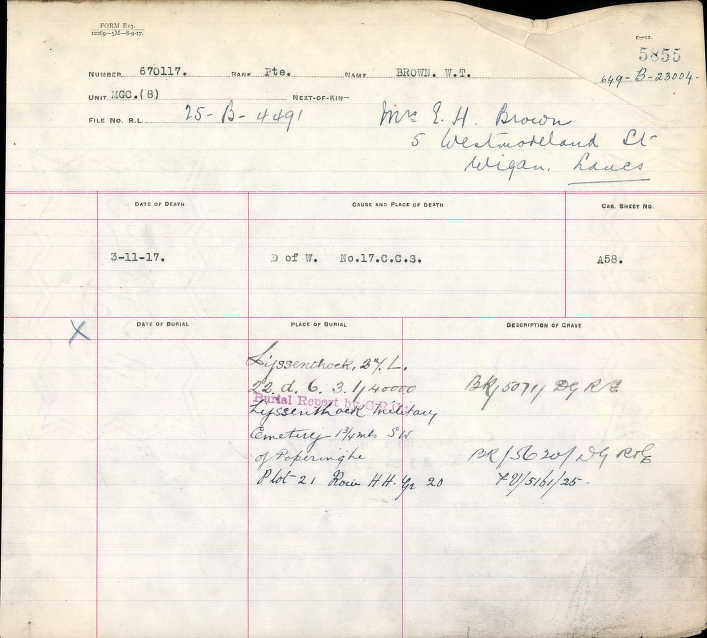 FORM E17.
5855
649-B-23004-
NUMBER 670117. RANK Pte. NAME BROWN. W.T.
UNIT MGC.(8) NEXT-OF-KIN—
FILE NO. R.L. 25-B-4491
Mrs E. H. Brown
5 Westmoreland St
Wigan. Lancs
DATE OF DEATH CAUSE AND PLACE OF DEATH CAS. SHEET NO.
3-11-17. D of W. No.17.C.C.S. A58.
X
DATE OF BURIAL PLACE OF BURIAL DESCRIPTION OF GRAVE
Lijssenthoek, 27. L.
22. d. 6. 3. 1/40000 BR/5071/ DG R&E
Burial Report by G.R.U.
Lyssenthock Military
Cemetery 1¾ mls SW
of Poperinghe BR/5620/ DG R&E
Plot 21 Row HH. Gr 20 FV/5161/25.